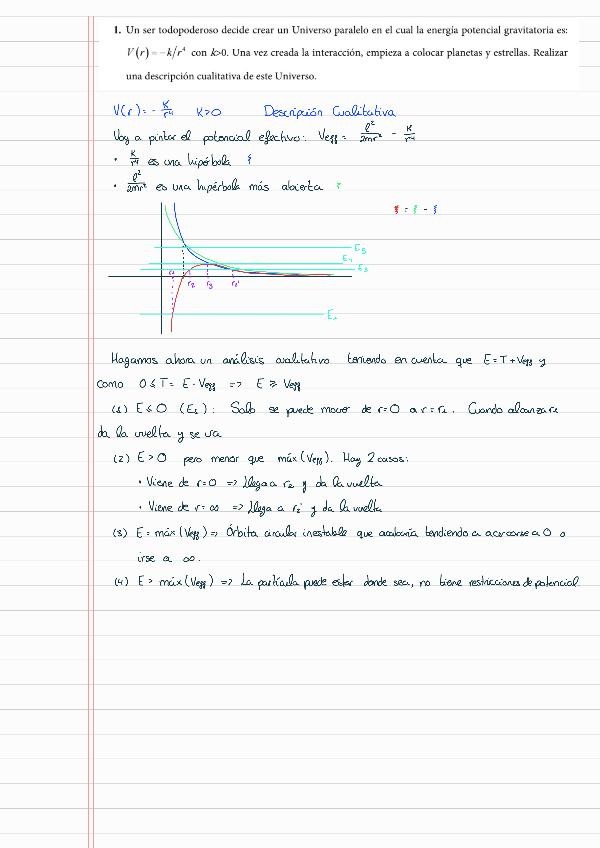 1. Un ser todopoderoso decide crear un Universo paralelo en el cual la energía potencial gravitatoria es:
V(r) = −k/r⁴ con k>0. Una vez creada la interacción, empieza a colocar planetas y estrellas. Realizar
una descripción cualitativa de este Universo.
V(r) = - K/r⁴ K>0 Descripción Cualitativa
Voy a pintar el potencial efectivo: Veff = ℓ²/2mr² - K/r⁴
• K/r⁴ es una hipérbola
• ℓ²/2mr² es una hipérbola más abierta
= -
E₄
E₃
r₁ r₂ r₃ r₂'
Hagamos ahora un análisis cualitativo teniendo en cuenta que E = T + Veff y
como 0 ≤ T = E - Veff => E ≥ Veff
(1) E ≤ 0 (E₁): Solo se puede mover de r=0 a r=r₁. Cuando alcanza r₁
da la vuelta y se va
(2) E > 0 pero menor que máx(Veff). Hay 2 casos:
• Viene de r=0 => Llega a r₂ y da la vuelta
• Viene de r=∞ => Llega a r₂' y da la vuelta
(3) E = máx(Veff) => Órbita circular inestable que acabaría tendiendo a acercarse a 0 o
irse a ∞.
(4) E > máx(Veff) => La partícula puede estar donde sea, no tiene restricciones de potencial